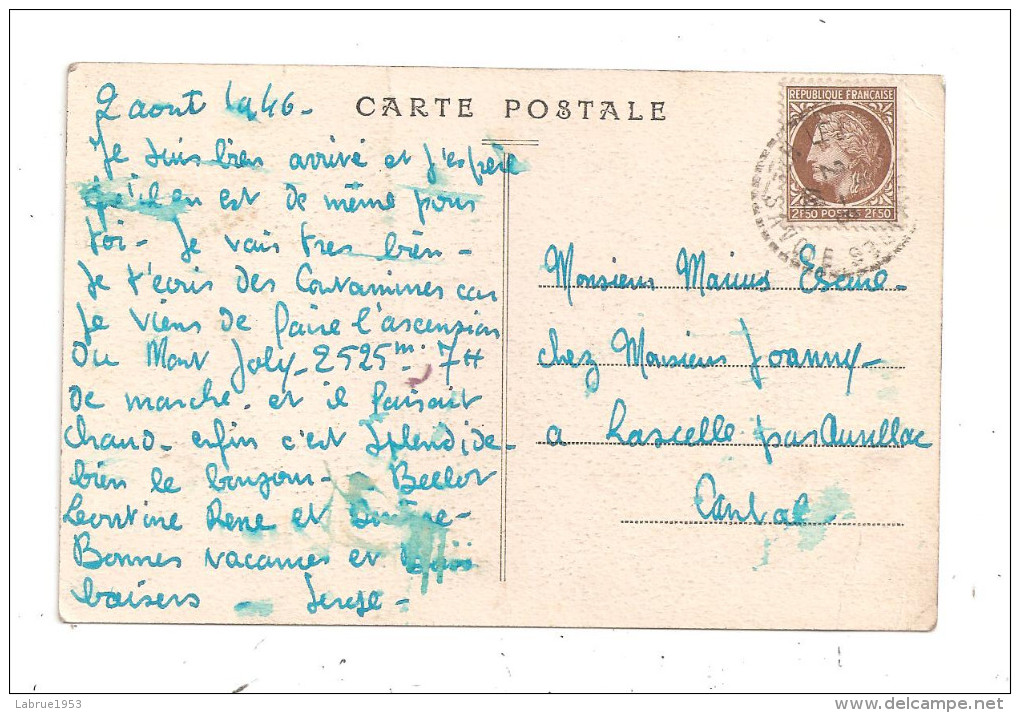 CARTE POSTALE
2 aout 1946-
Je suis bien arrivé et j'espere
qu'il en est de même pour
toi - Je vais tres bien -
Je t'écris des Contamines car
Je viens de faire l'ascension
Du Mont Joly - 2525m. 7H
De marche. et il faisait
chaud - enfin c'est splendide -
bien le bonjour -
Leontine Rene et
Bonnes vacances et
baisers - Serge -
REPUBLIQUE FRANÇAISE
2F50 POSTES 2F50
Monsieur Marius
chez Monsieur Joanny -
a Lascelle par Aurillac
Cantal -
Labrue1953
www.delcampe.net